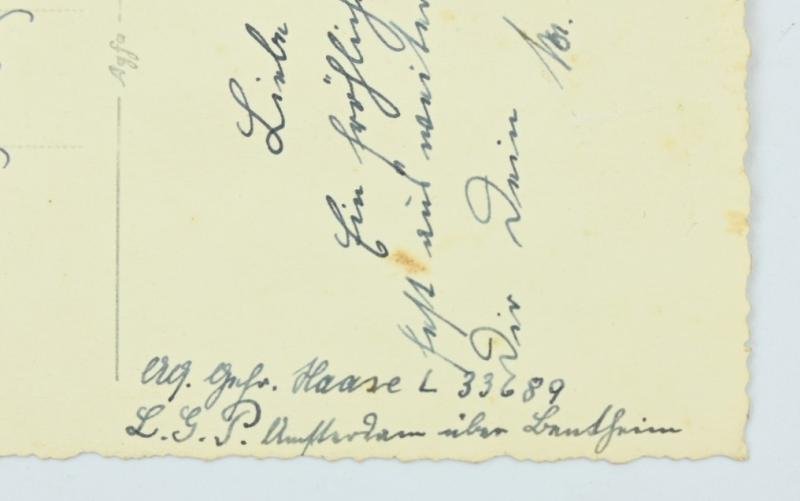 Agfa
Liebe
Ein fröhlich
fest aus weiter
Dir Dein
Abs. Gefr. Haase L 33689
L.G.P. Amsterdam über Bentheim